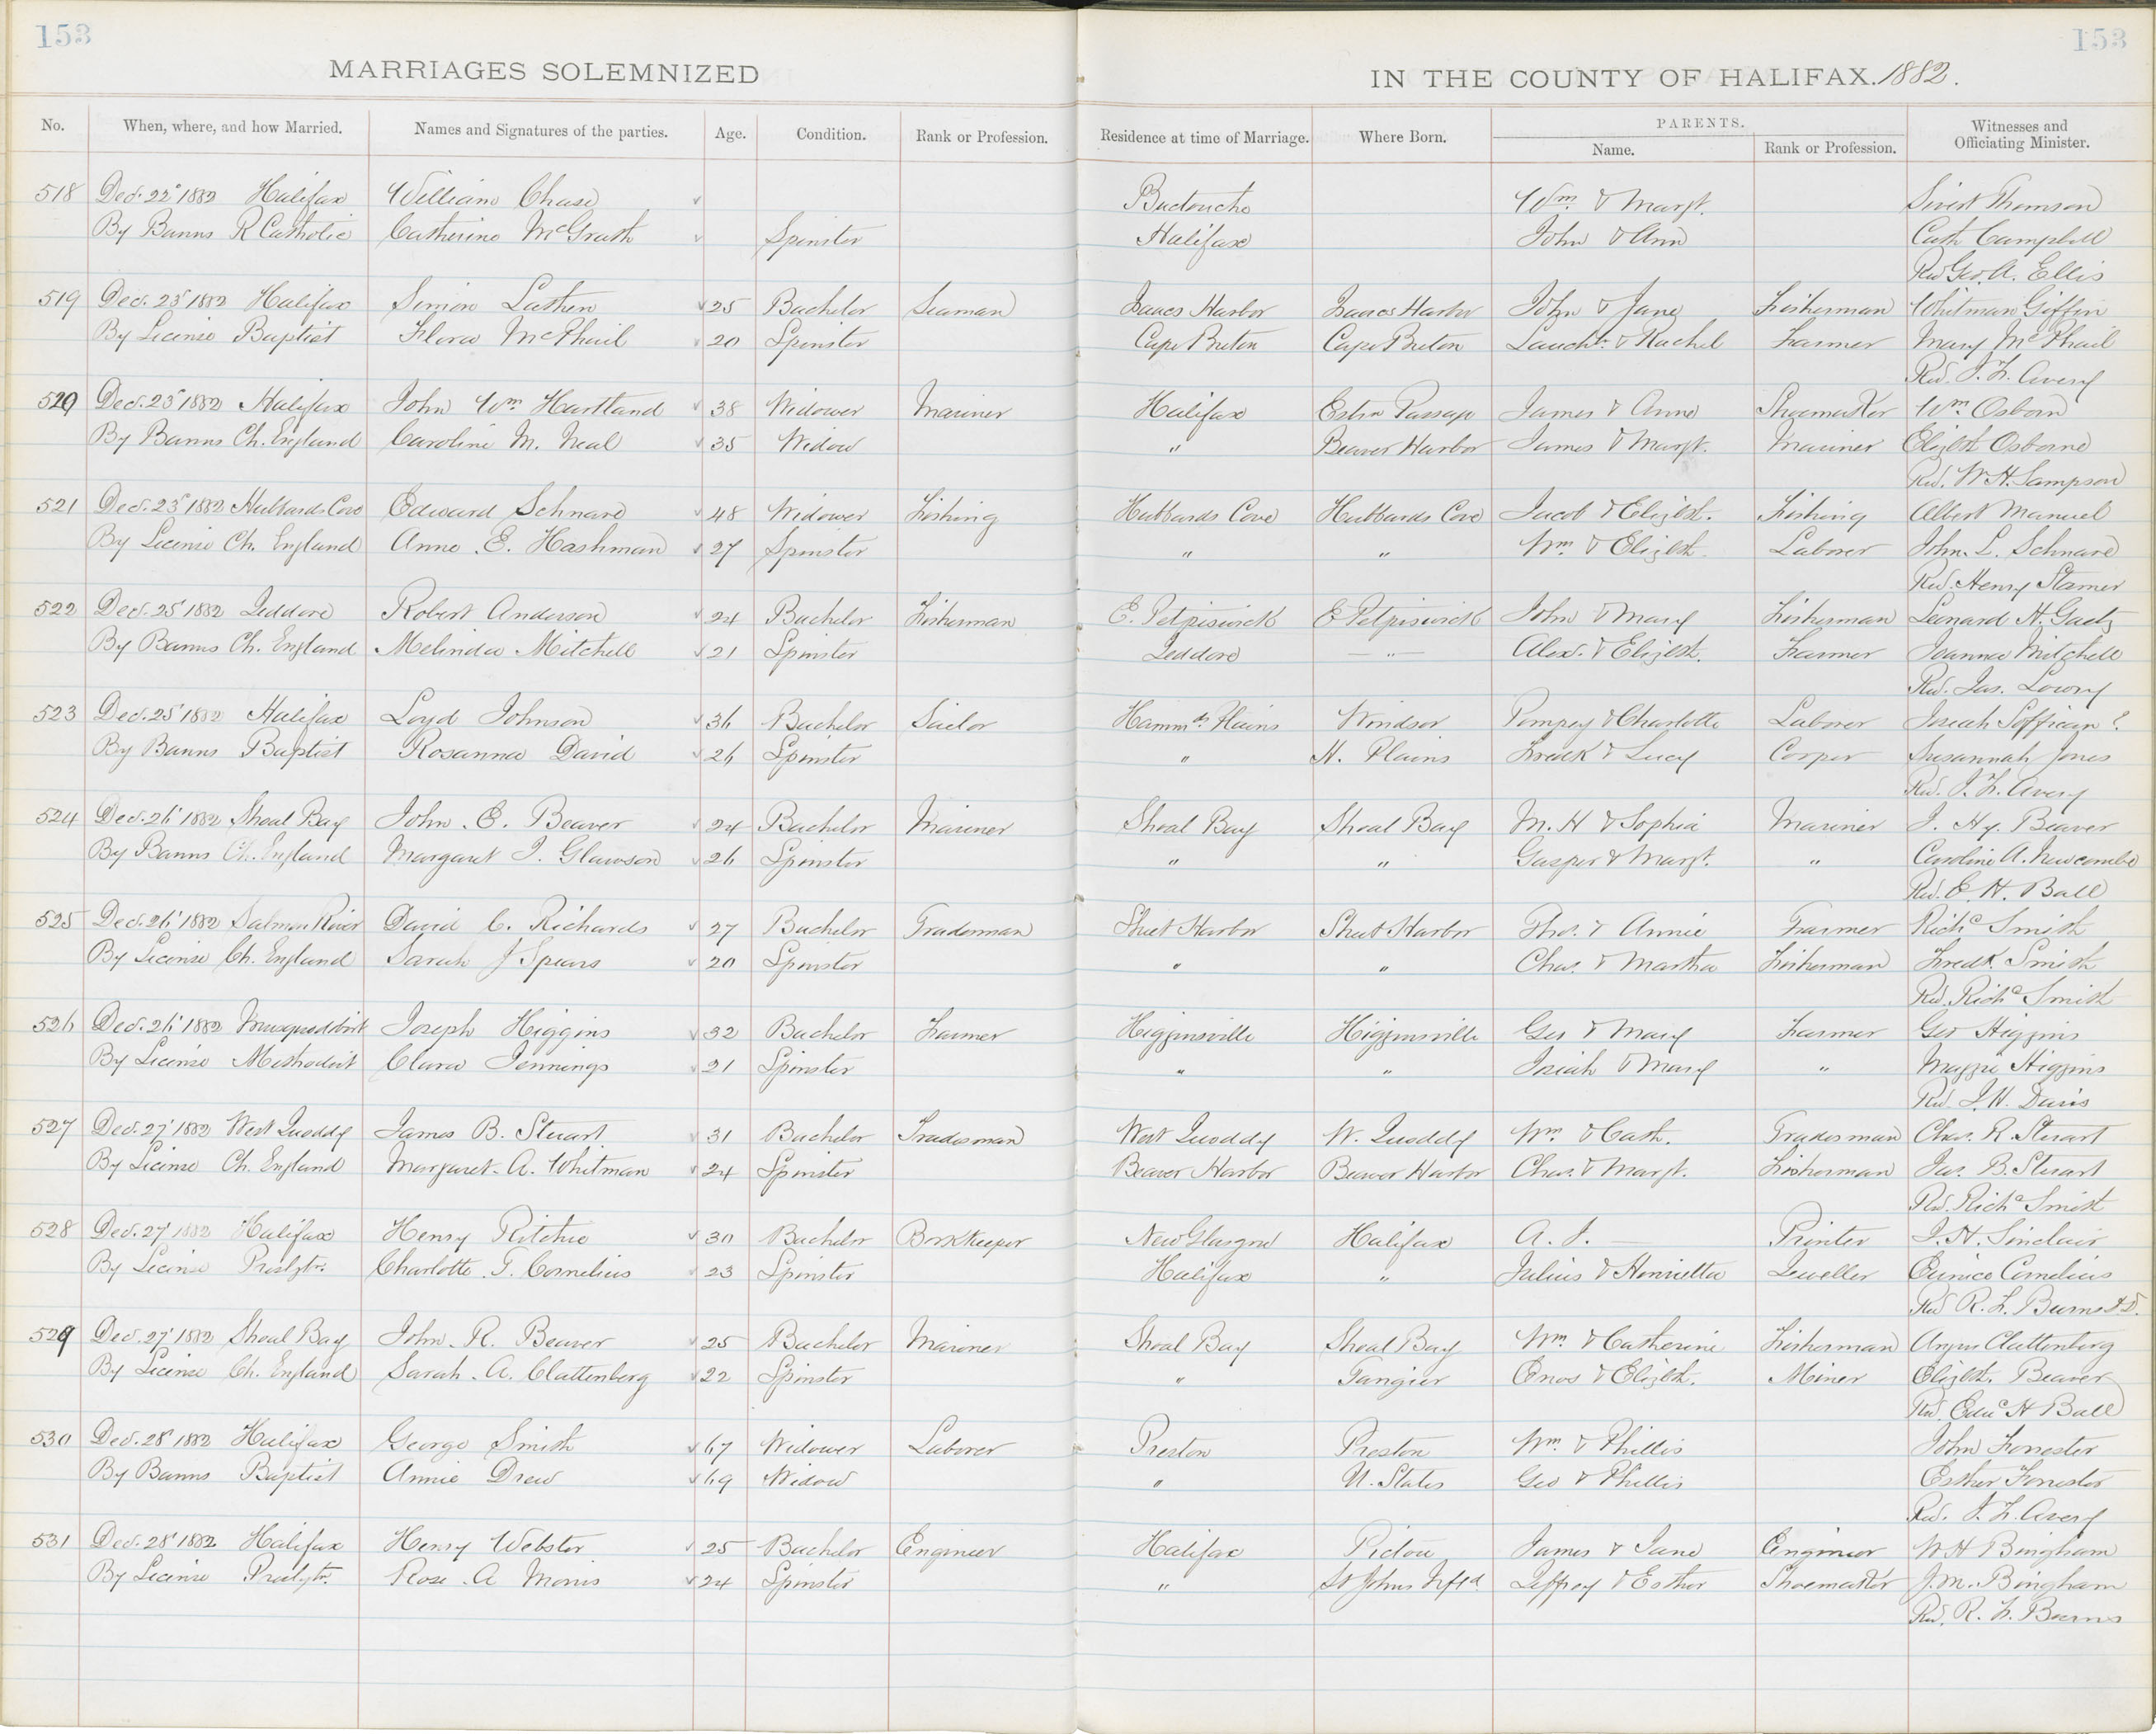 153 153
MARRIAGES SOLEMNIZED IN THE COUNTY OF HALIFAX. 1882.
No. When, where, and how Married. Names and Signatures of the parties. Age. Condition. Rank or Profession. Residence at time of Marriage. Where Born. PARENTS. Name. Rank or Profession. Witnesses and Officiating Minister.
518 Dec. 22 1882 Halifax William Chase Buctouche Wm & Margt. Thomson
By Banns R Catholic Catherine McGrath Spinster Halifax John & Ann Cath Campbell
Rev Geo. A. Ellis
519 Dec. 23 1882 Halifax Simion 25 Bachelor Seaman Isaacs Harbor Isaacs Harbor John & Jane Fisherman Whitman Giffin
By License Baptist Flora McPhail 20 Spinster Cape Breton Cape Breton Lauchn & Rachel Farmer Mary McPhail
Rev. J. F. Avery
520 Dec. 23 1882 Halifax John Wm Hartland 38 Widower Mariner Halifax Estrn Passage James & Anne Shoemaker Wm Osborn
By Banns Ch. England Caroline M. Neal 35 Widow " Beaver Harbor James & Margt. Mariner Elizbth Osborne
Rev. W H. Sampson
521 Dec. 23 1882 Hubbards Cove Edward Schnare 48 Widower Fishing Hubbards Cove Hubbards Cove Jacob & Elizbt. Fishing Albert Manuel
By License Ch. England Anne E. Hashman 27 Spinster " " Wm & Elizbth Laborer John. L. Schnare
Rev. Henry Stamer
522 Dec. 25 1882 Jeddore Robert Anderson 24 Bachelor Fisherman E. Petpiswick E Petpiswick John & Mary Fisherman Leonard H. Gaetz
By Banns Ch. England Melinda Mitchell 21 Spinster Jeddore — " — Alex. & Elizbth. Farmer Joanna Mitchell
Rev. Jas. Lowry
523 Dec. 25 1882 Halifax Loyd Johnson 36 Bachelor Sailor Hammds Plains Windsor Pompey & Charlotte Laborer Josiah ?
By Banns Baptist Rosanna David 26 Spinster " H. Plains Fredk & Lucy Cooper Susannah Jones
Rev. J. F. Avery
524 Dec. 26 1882 Shoal Bay John. E. Beaver 24 Bachelor Mariner Shoal Bay Shoal Bay M. H & Sophia Mariner J. Hy. Beaver
By Banns Ch. England Margaret J. Glawson 26 Spinster " " Gasper & Margt. " Caroline A. Newcombe
Rev. E. H. Ball
525 Dec. 26 1882 Salmon River David C. Richards 27 Bachelor Tradesman Sheet Harbor Sheet Harbor Thos. & Annie Farmer Richd Smith
By License Ch. England Sarah J Spears 20 Spinster " " Chas. & Martha Fisherman Fredk. Smith
Rev. Richd Smith
526 Dec. 26 1882 Musquodobit Joseph Higgins 32 Bachelor Farmer Higginsville Higginsville Geo & Mary Farmer Geo Higgins
By License Methodist Clara Jennings 21 Spinster " " Josiah & Mary " Maggie Higgins
Rev. J. W. Davis
527 Dec. 27 1882 West Quoddy James B. Stuart 31 Bachelor Tradesman West Quoddy W. Quoddy Wm & Cath. Tradesman Chas. R. Stuart
By License Ch. England Margaret. A. Whitman 24 Spinster Beaver Harbor Beaver Harbor Chas. & Margt. Fisherman Jas. B. Stuart
Rev. Richd Smith
528 Dec. 27 1882 Halifax Henry Ritchie 30 Bachelor Bookkeeper New Glasgow Halifax A. J. — Printer J. H. Sinclair
By License Presbytn. Charlotte T. Cornelius 23 Spinster Halifax " Julius & Henrietta Jeweller Eunice Cornelius
Rev R. F. Burns D.D.
529 Dec. 27 1882 Shoal Bay John. R. Beaver 25 Bachelor Mariner Shoal Bay Shoal Bay Wm. & Catherine Fisherman Angus Clattenberg
By License Ch. England Sarah. A. Clattenberg 22 Spinster " Tangier Enos & Elizbth. Miner Elizbth. Beaver
Rev. Edwd H Ball
530 Dec. 28 1882 Halifax George Smith 67 Widower Laborer Preston Preston Wm. & Phillis John Forrester
By Banns Baptist Annie Drew 69 Widow " U. States Geo & Phillis Esther Forrester
Rev. J. F. Avery
531 Dec. 28 1882 Halifax Henry Webster 25 Bachelor Engineer Halifax Pictou James & Jane Engineer W H Bingham
By License Presbytn. Rose A Morris 24 Spinster " St Johns Nfld Jeffrey & Esther Shoemaker J. M. Bingham
Rev. R. F. Burns